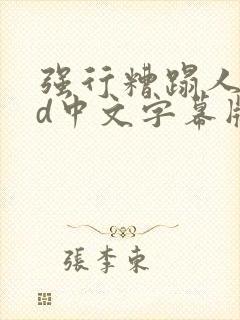 强行糟蹋人
d中文字幕
張李東